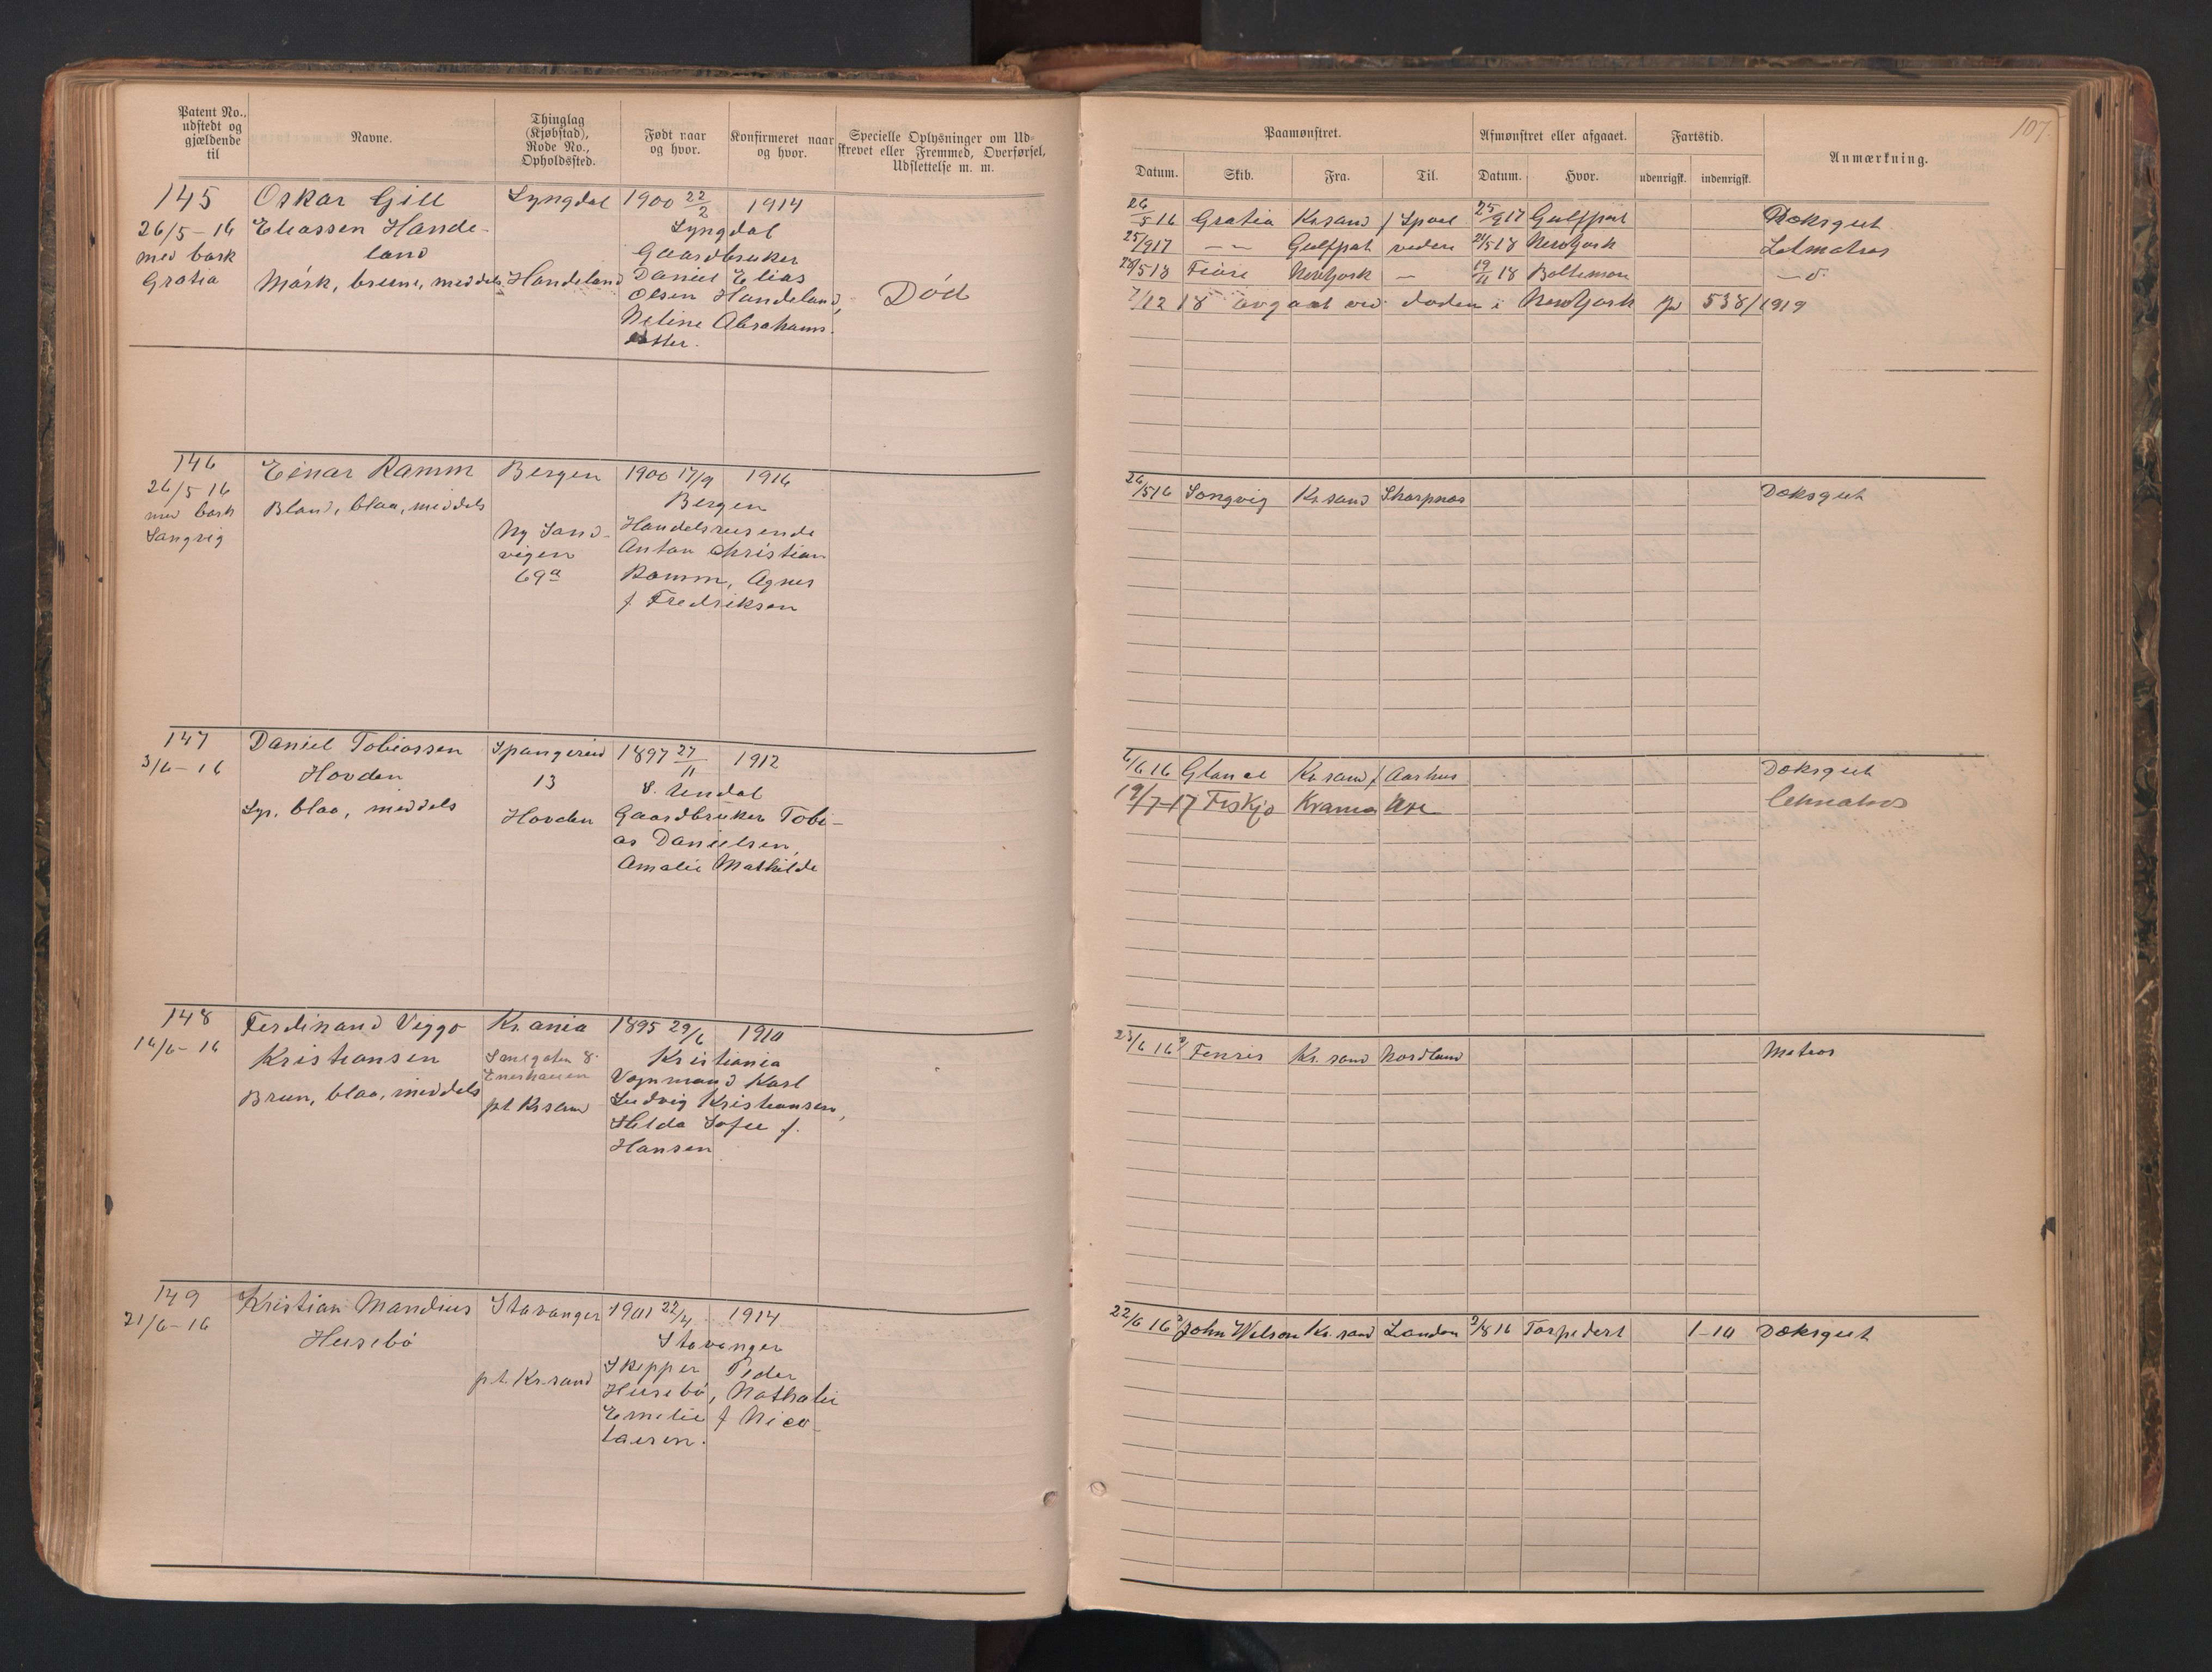 Patent No., udstedt og gjældende til
Navne.
Thinglag (Kjøbstad), Rode No., Opholdssted.
Født naar og hvor.
Konfirmeret naar og hvor.
Specielle Oplysninger om Udskrevet eller Fremmed, Overførsel, Udslettelse m. m.
145
26/5-16
med bark
Gratia
Oskar Gill
Eliassen Hande-
land
Mörk, brune, middels
Lyngdal
Handeland
1900 22/2 1914
Lyngdal
Gaardbruker
Daniel Elias
Olsen Handeland,
Neline Abrahams-
datter.
Död
146
26/5 16
med bark
Songvig
Einar Ramm
Blond, blaa, middels
Bergen
Ny Sand-
vigen
69a
1900 17/9 1916
Bergen
Handelsreisende
Anton Christian
Ramm, Agnes
f Fredriksen
147
3/6-16
Daniel Tobiassen
Hovden
Lys, blaa, middels
Spangereid
13
Hovden
1897 27/11 1912
S. Undal
Gaardbruker Tobi-
as Danielsen,
Amalie Mathilde
148
16/6-16
Ferdinand Viggo
Kristiansen
Brun, blaa, middels
Kr.ania
Enerhaugen
pt Krsand
1895 29/6 1910
Kristiania
Vognmand Karl
Ludvig Kristiansen,
Hilda Sofie f.
Hansen
149
21/6-16
Kristian Mandius
Husebö
Stavanger
p.t. Kr.sand
1901 22/4 1914
Stavanger
Skipper Peder
Husebö, Nathalie
Emelie f Nico-
laisen.
107.
Paamønstret.
Afmønstret eller afgaaet.
Fartstid.
Anmærkning.
Datum.
Skib.
Fra.
Til.
Datum.
Hvor.
udenrigsk.
indenrigsk.
26/5 16 Gratia Krsand 25/9 17 Gulfport Dæksgut
25/9 17 -"- Gulfport videre 21/5 18 NewYork Letmatros
28/5 18 NewYork - 19/11 18 Baltimore - d.
7/12 18 avgaat ved döden i NewYork 538/1919
26/5 16 Songvig Kr.sand Sharpnes Dæksgut
6/6 16 Kr.sand Aarhus Dæksgut
19/7-17 Krania
23/6 16 Fenris Kr. sand Nordland Matros
22/6 16 John Wilson Kr. sand London 9/8 16 Torpedert 1-10 Dæksgut